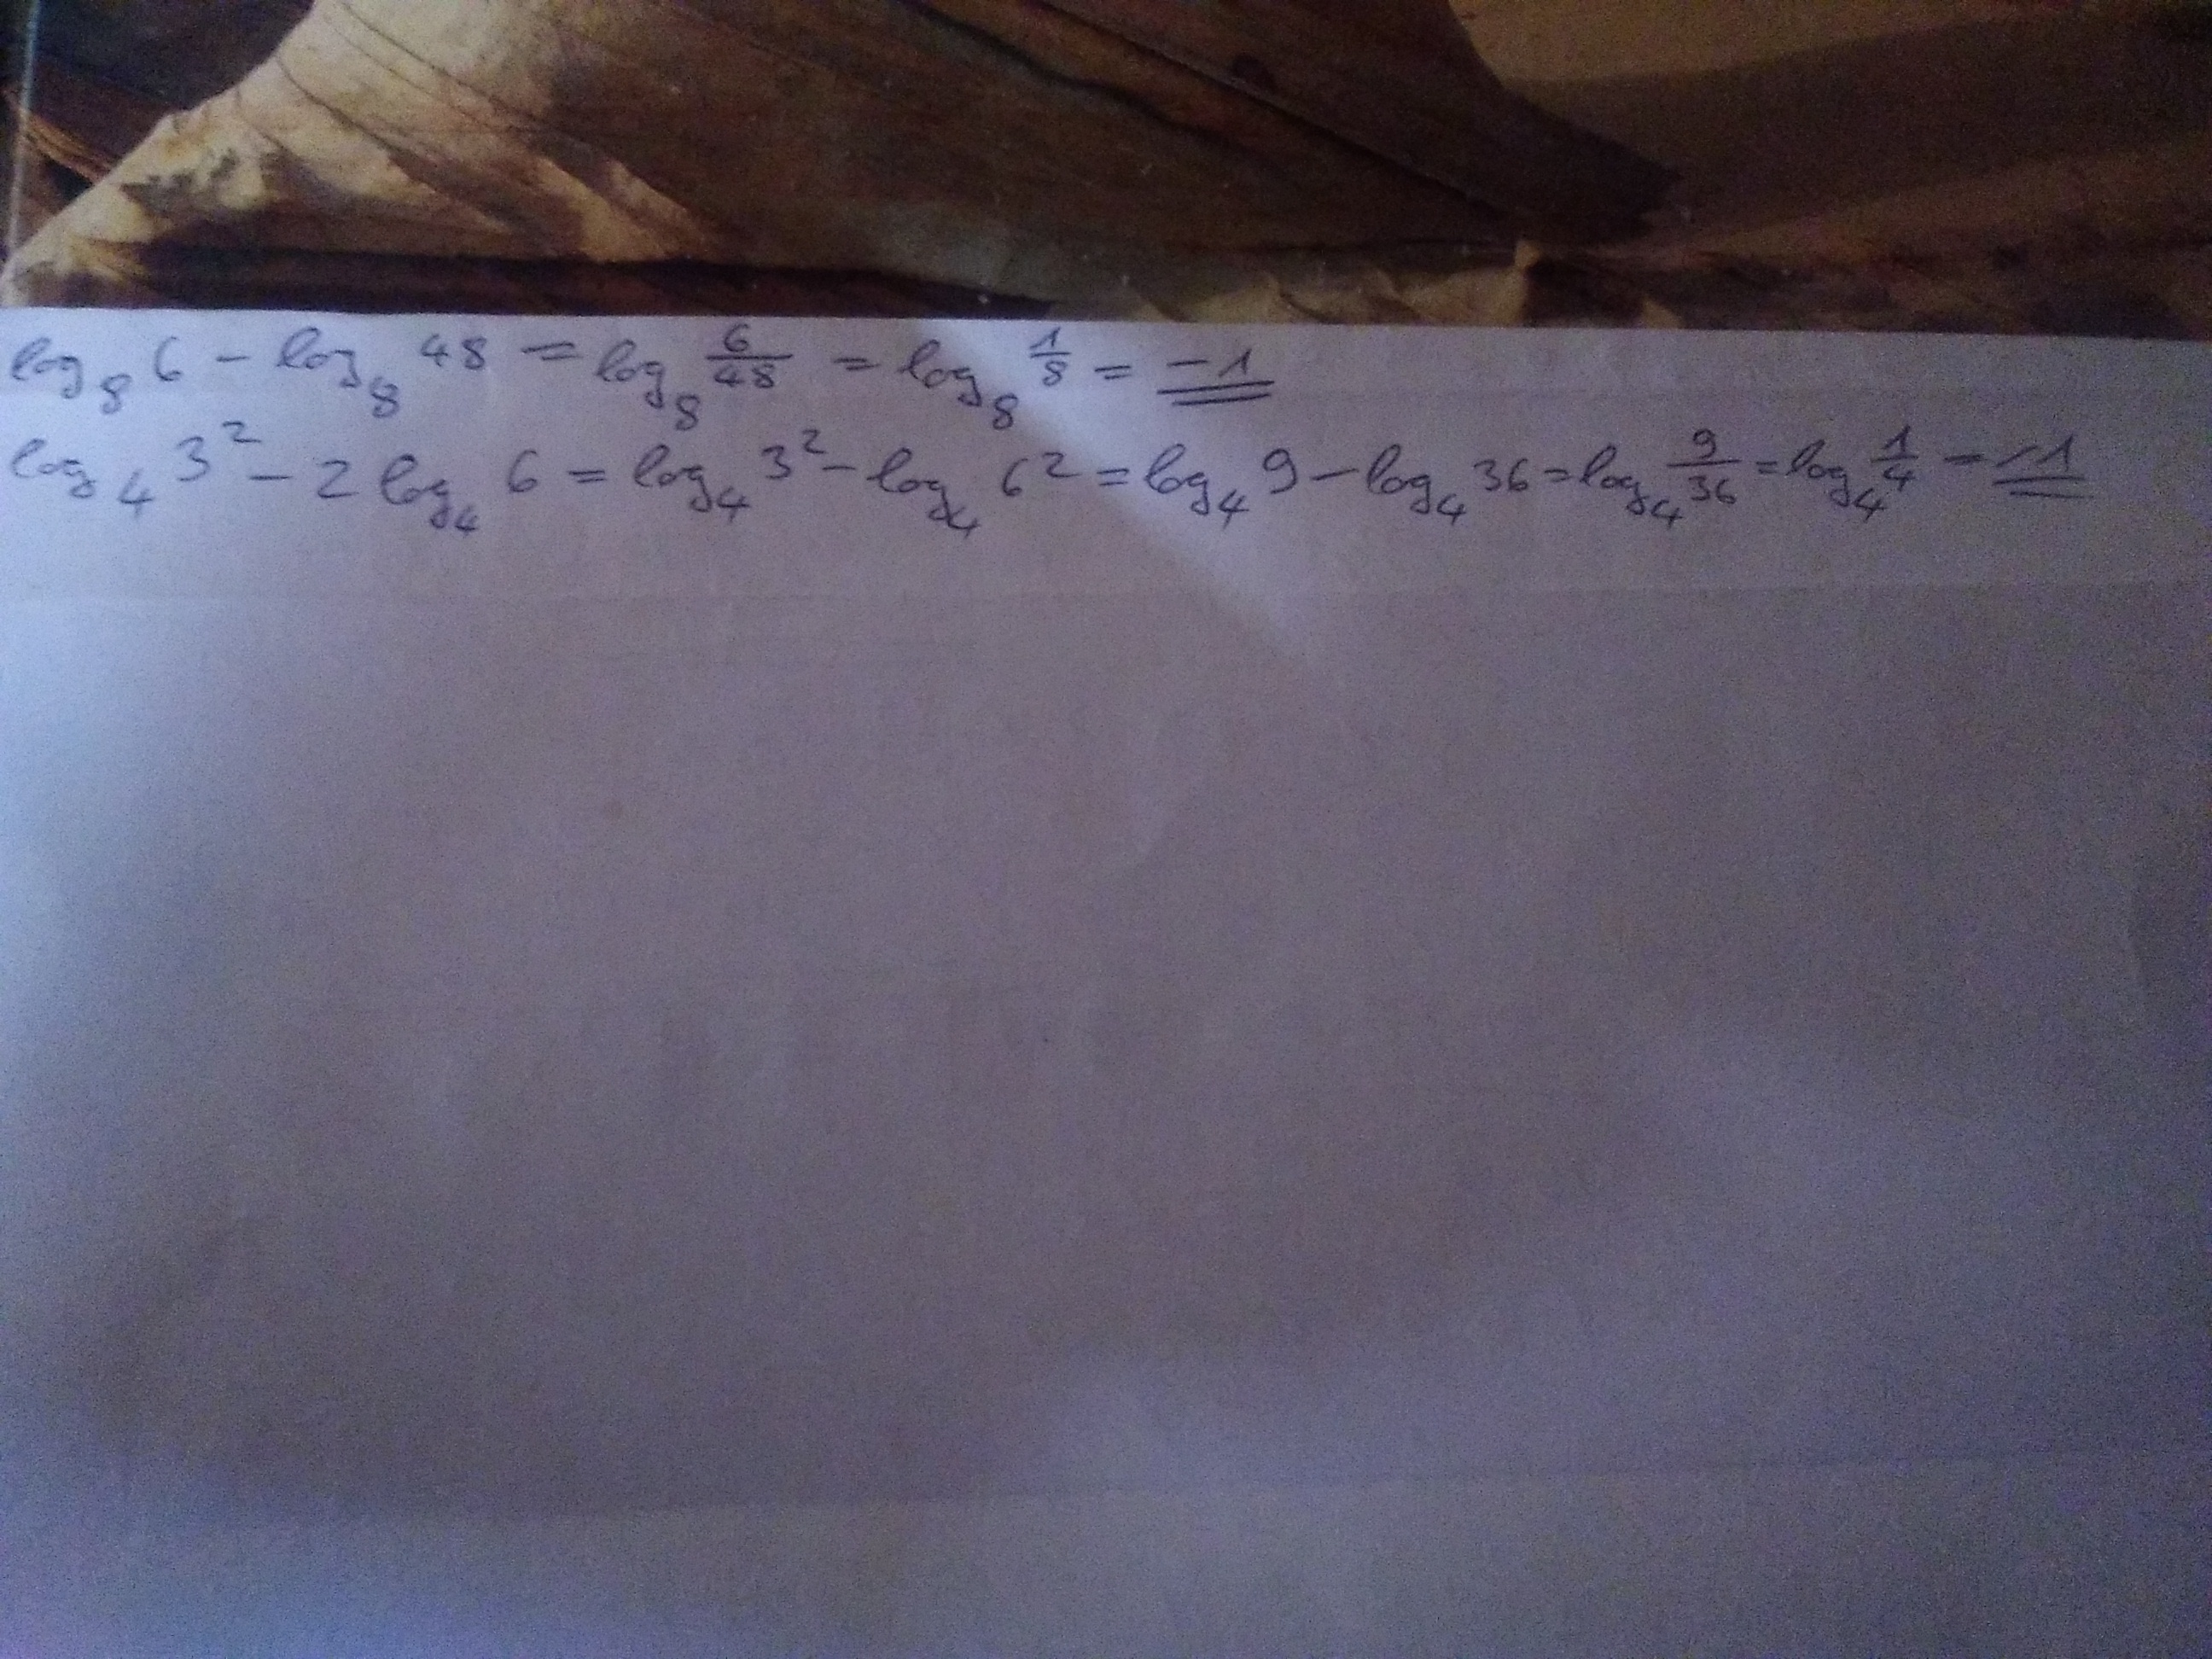 log₈ 6 - log₈ 48 = log₈ 6/48 = log₈ 1/8 = -1
log₄ 3² - 2 log₄ 6 = log₄ 3² - log₄ 6² = log₄ 9 - log₄ 36 = log₄ 9/36 = log₄ 1/4 = -1